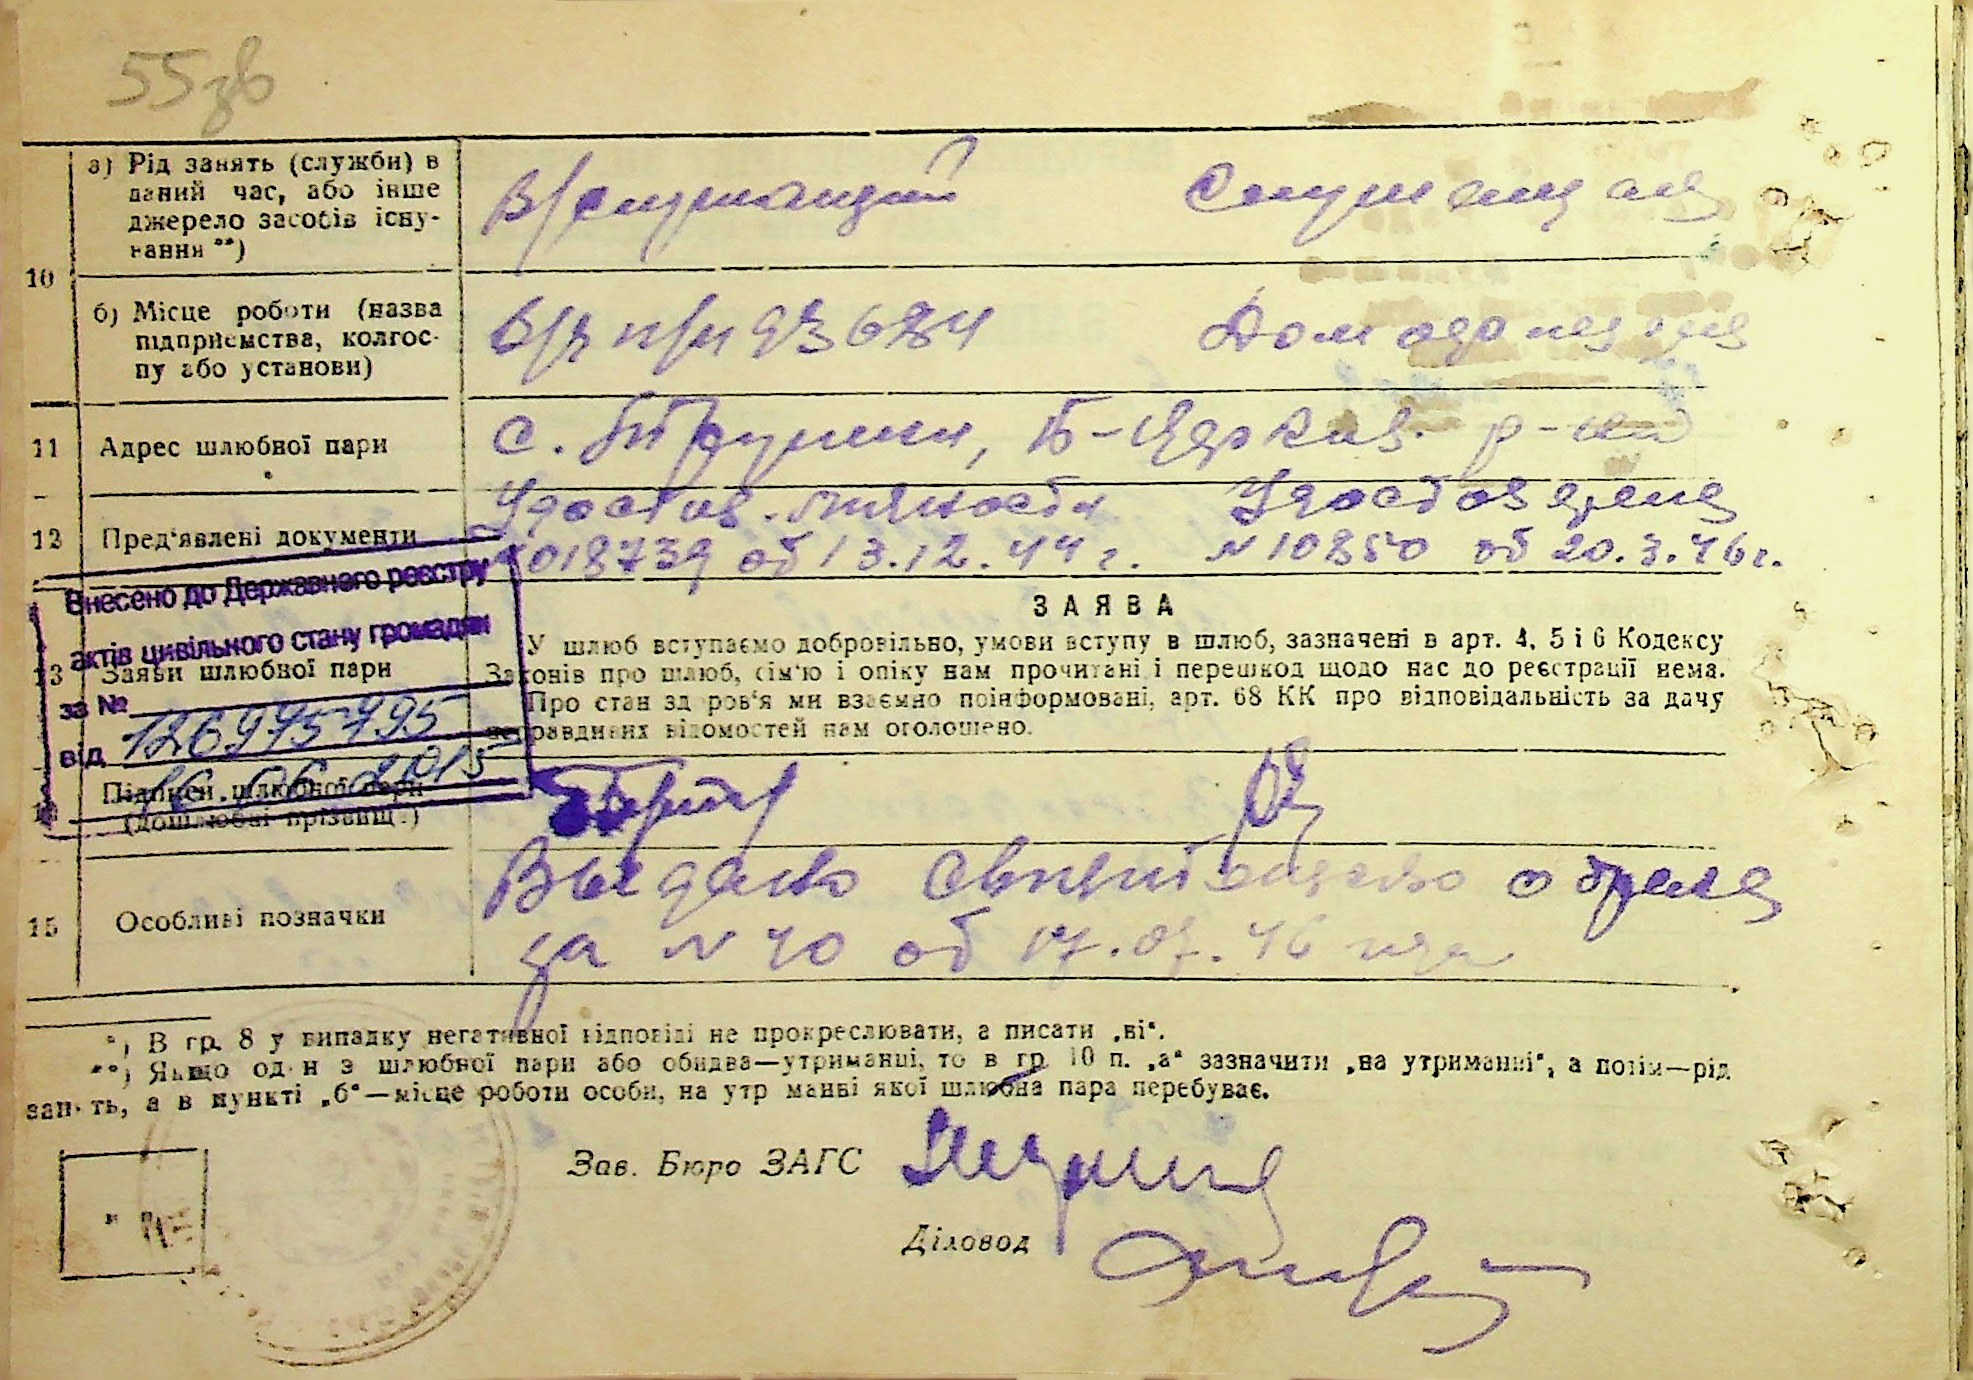 55зв
10
а) Рід занять (служби) в
даний час, або інше
джерело засобів існу-
вання **)
В/служащий
Служащая
б) Місце роботи (назва
підприємства, колгос-
пу або установи)
в/ч п/п 93684
11
Адрес шлюбної пари
с. Трушки, Б-Церков. р-на
12
Пред'явлені документи
Удостов. личности
018739 об 13.12.44 г.
Удостоверение
№ 10850 об 20.3.46 г.
Внесено до Державного реєстру
актів цивільного стану громадян
за № 126975795
від 16.06.2015
13
Заяви шлюбної пари
ЗАЯВА
У шлюб вступаємо добровільно, умови вступу в шлюб, зазначені в арт. 4, 5 і 6 Кодексу
Законів про шлюб, сім'ю і опіку нам прочитані і перешкод щодо нас до реєстрації нема.
Про стан здоров'я ми взаємно поінформовані, арт. 68 КК про відповідальність за дачу
неправдивих відомостей нам оголошено.
Підписи шлюбної пари
(дошлюбні прізвищ.)
15
Особливі позначки
Выдано свидетельство о браке
за № 40 об 17.07.46 года
*) В гр. 8 у випадку негативної відповіді не прокреслювати, а писати „ні“.
**) Якщо один з шлюбної пари або обидва—утриманці, то в гр. 10 п. „а“ зазначити „на утриманні“, а потім—рід
занять, а в пункті „б“—місце роботи особи, на утриманні якої шлюбна пара перебуває.
Зав. Бюро ЗАГС
Діловод